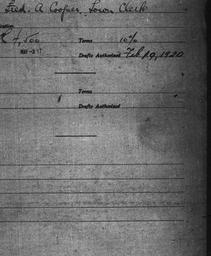 Fred. A Cooper Town Clerk
7,500 Terms 10%
MAY -3 '17 Drafts Authorized Feb 19, 1920
Terms
Drafts Authorized